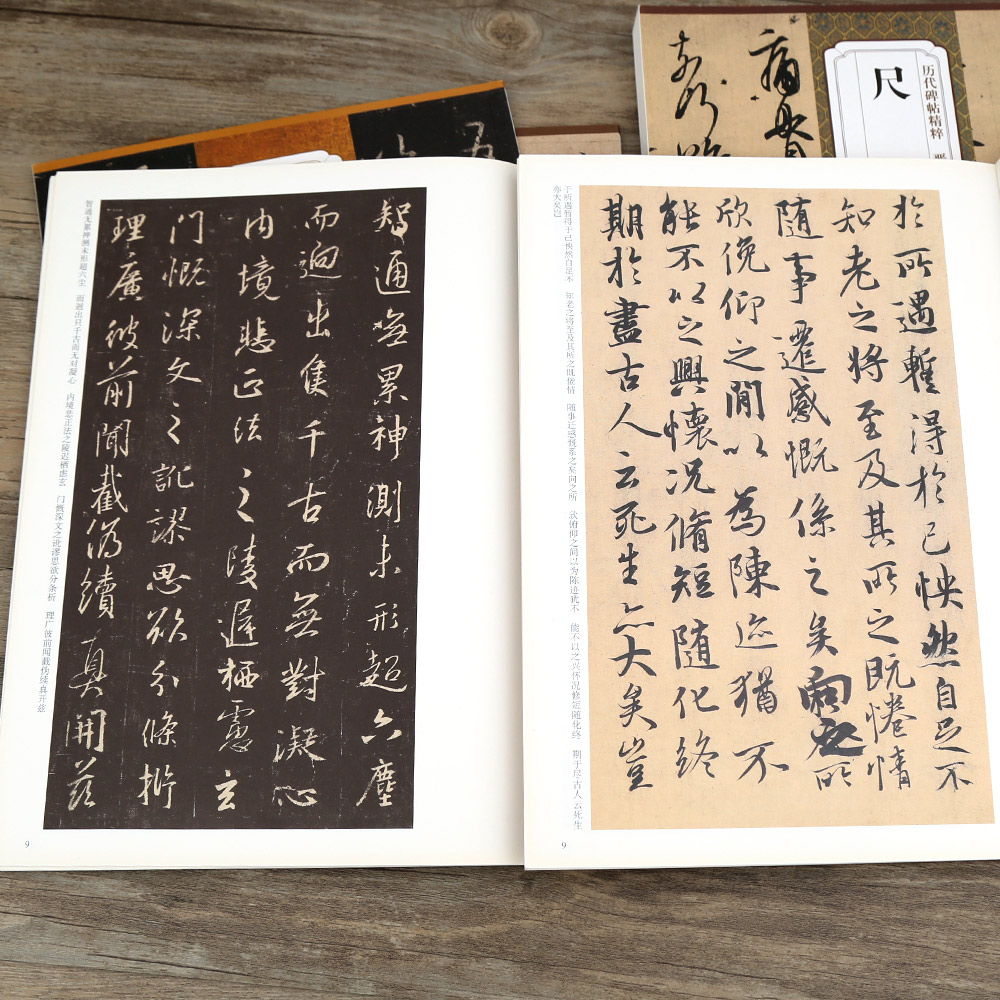 尺
历代碑帖精粹
智通無累神測未形超六塵
而迥出隻千古而無對凝心
內境悲正法之陵遲栖慮玄
門慨深文之訛謬思欲分條析
理廣彼前聞截偽續真開茲
智通无累神测未形超六尘 而迥出只千古而无对凝心 内境悲正法之陵迟栖虑玄 门慨深文之讹谬思欲分条析 理广彼前闻截伪续真开兹
9
於所遇暫得於己怏然自足不
知老之將至及其所之既惓情
隨事遷感慨係之矣向之所
欣俛仰之閒以為陳迹猶不
能不以之興懷況脩短隨化終
期於盡古人云死生亦大矣豈
于所遇暂得于己怏然自足不 知老之将至及其所之既倦情 随事迁感慨系之矣向之所 欣俯仰之间以为陈迹犹不 能不以之兴怀况修短随化终 期于尽古人云死生
亦大矣岂
9